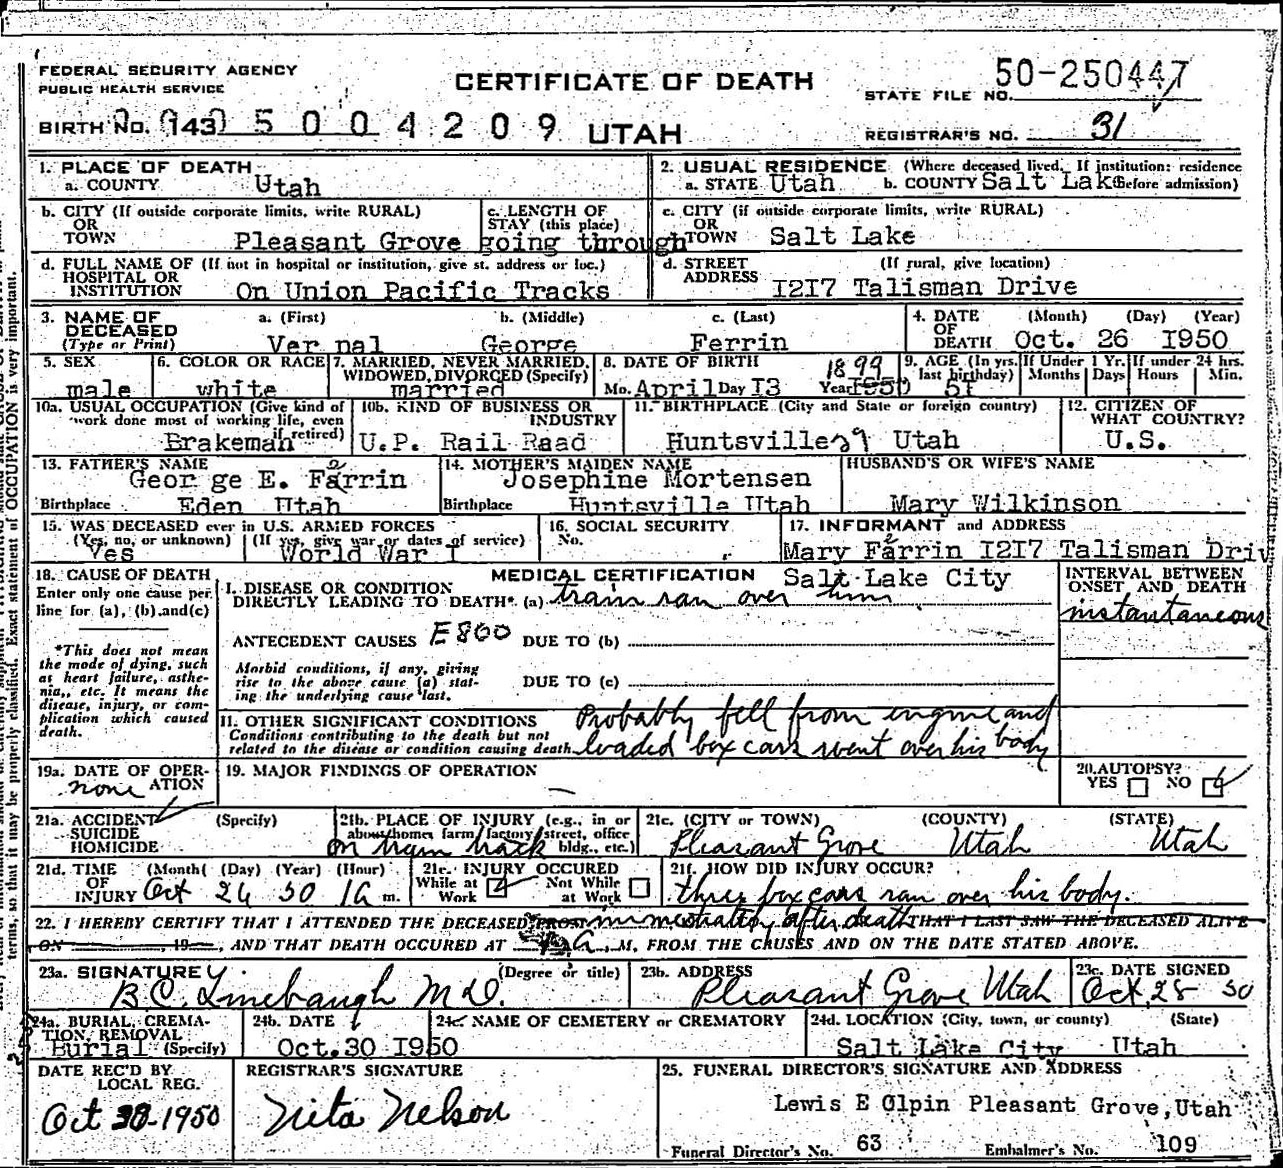 FEDERAL SECURITY AGENCY
PUBLIC HEALTH SERVICE
CERTIFICATE OF DEATH
STATE FILE NO. 50-250447
BIRTH NO. 143 5004209 UTAH
REGISTRAR'S NO. 31
1. PLACE OF DEATH
a. COUNTY Utah
2. USUAL RESIDENCE (Where deceased lived. If institution: residence
a. STATE Utah b. COUNTY Salt Lake before admission)
b. CITY (If outside corporate limits, write RURAL)
OR
TOWN Pleasant Grove
c. LENGTH OF
STAY (this place)
going through
c. CITY (if outside corporate limits, write RURAL)
OR
TOWN Salt Lake
d. FULL NAME OF (If not in hospital or institution, give st. address or loc.)
HOSPITAL OR
INSTITUTION On Union Pacific Tracks
d. STREET (If rural, give location)
ADDRESS 1217 Talisman Drive
3. NAME OF
DECEASED
(Type or Print)
a. (First) b. (Middle) c. (Last)
Ver nal George Ferrin
4. DATE (Month) (Day) (Year)
OF
DEATH Oct. 26 1950
5. SEX
male
6. COLOR OR RACE
white
7. MARRIED, NEVER MARRIED,
WIDOWED, DIVORCED (Specify)
married
8. DATE OF BIRTH
Mo. April Day 13 Year 1899
9. AGE (In yrs. last birthday) 51
If Under 1 Yr. Months Days
If under 24 hrs. Hours Min.
10a. USUAL OCCUPATION (Give kind of
work done most of working life, even
if retired) Brakeman
10b. KIND OF BUSINESS OR
INDUSTRY
U.P. Rail Raad
11. BIRTHPLACE (City and State or foreign country)
Huntsville 29 Utah
12. CITIZEN OF
WHAT COUNTRY?
U.S.
13. FATHER'S NAME
Geor ge E. Farrin e
Birthplace Eden Utah
14. MOTHER'S MAIDEN NAME
Josephine Mortensen
Birthplace Huntsville Utah
HUSBAND'S OR WIFE'S NAME
Mary Wilkinson
15. WAS DECEASED ever in U.S. ARMED FORCES
(Yes, no, or unknown) (If yes, give war or dates of service)
Yes World War I
16. SOCIAL SECURITY
No.
17. INFORMANT and ADDRESS
Mary Farrin e 1217 Talisman Driv
Salt Lake City
18. CAUSE OF DEATH
Enter only one cause per
line for (a), (b) and (c)
*This does not mean
the mode of dying, such
as heart failure, asthe-
nia, etc. It means the
disease, injury, or com-
plication which caused
death.
MEDICAL CERTIFICATION
I. DISEASE OR CONDITION
DIRECTLY LEADING TO DEATH* (a) train ran over him
ANTECEDENT CAUSES E800 DUE TO (b)
Morbid conditions, if any, giving
rise to the above cause (a) stat-
ing the underlying cause last.
DUE TO (c)
11. OTHER SIGNIFICANT CONDITIONS
Conditions contributing to the death but not
related to the disease or condition causing death.
Probably fell from engine and
loaded box cars went over his body
INTERVAL BETWEEN
ONSET AND DEATH
instantaneous
19a. DATE OF OPER-
ATION
none
19. MAJOR FINDINGS OF OPERATION
20. AUTOPSY?
YES NO
21a. ACCIDENT (Specify)
SUICIDE
HOMICIDE
21b. PLACE OF INJURY (e.g., in or
about home, farm, factory, street, office
bldg., etc.)
on train track
21c. (CITY or TOWN) (COUNTY) (STATE)
Pleasant Grove Utah Utah
21d. TIME (Month) (Day) (Year) (Hour)
OF
INJURY Oct 26 50 1 a m.
21e. INJURY OCCURED
While at Work Not While at Work
21f. HOW DID INJURY OCCUR?
three box cars ran over his body.
22. I HEREBY CERTIFY THAT I ATTENDED THE DECEASED FROM immediately after death THAT I LAST SAW THE DECEASED ALIVE
ON , 19 , AND THAT DEATH OCCURED AT A M, FROM THE CAUSES AND ON THE DATE STATED ABOVE.
23a. SIGNATURE (Degree or title)
B.C. Linebaugh M.D.
23b. ADDRESS
Pleasant Grove Utah
23c. DATE SIGNED
Oct 28 50
24a. BURIAL, CREMA-
TION, REMOVAL
Burial (Specify)
24b. DATE
Oct. 30 1950
24c. NAME OF CEMETERY or CREMATORY
24d. LOCATION (City, town, or county) (State)
Salt Lake City Utah
DATE REC'D BY
LOCAL REG.
Oct 1950
REGISTRAR'S SIGNATURE
Nita Nelson
25. FUNERAL DIRECTOR'S SIGNATURE AND ADDRESS
Lewis E Olpin Pleasant Grove, Utah
Funeral Director's No. 63 Embalmer's No. 109
terms, so that it may be properly classified. Exact statement of OCCUPATION is very important.